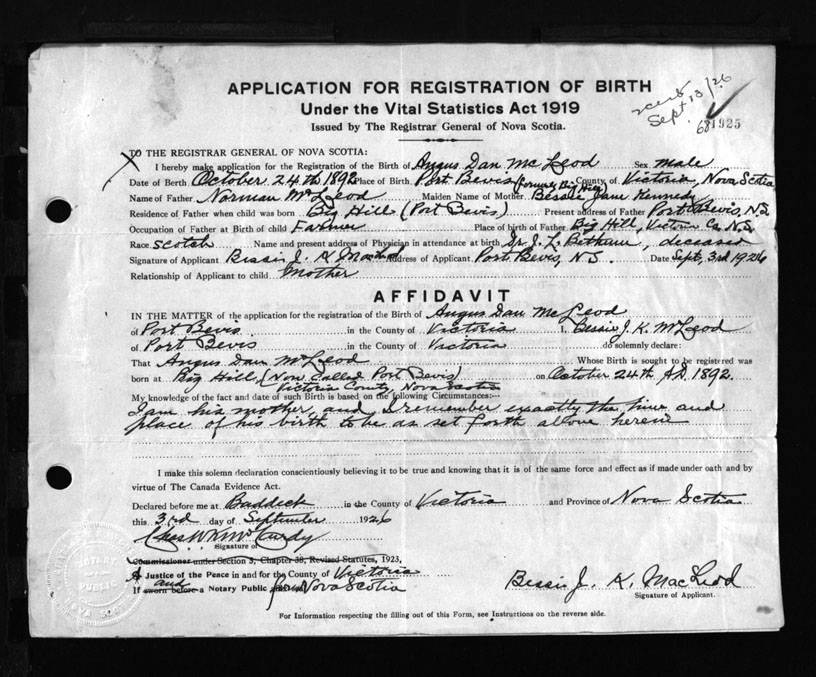 APPLICATION FOR REGISTRATION OF BIRTH
Under the Vital Statistics Act 1919
Issued by The Registrar General of Nova Scotia.
Sept 13/26
681925
TO THE REGISTRAR GENERAL OF NOVA SCOTIA:
I hereby make application for the Registration of the Birth of Angus Dan McLeod Sex male
Date of Birth October 24th 1892 Place of Birth Port Bevis (Formerly Big Hill) County of Victoria, Nova Scotia
Name of Father Norman McLeod Maiden Name of Mother Bessie Jane Kennedy
Residence of Father when child was born Big Hill (Port Bevis) Present address of Father Port Bevis, N.S
Occupation of Father at Birth of child Farmer Place of birth of Father Big Hill, Victoria Co, N.S,
Race scotch Name and present address of Physician in attendance at birth Dr. J. L. Bethune, deceased
Signature of Applicant Bessie J. K MacLeod Address of Applicant Port Bevis, N.S. Date Sept, 3rd 1926
Relationship of Applicant to child Mother
AFFIDAVIT
IN THE MATTER of the application for the registration of the Birth of Angus Dan McLeod
of Port Bevis in the County of Victoria I, Bessie J. K. McLeod
of Port Bevis in the County of Victoria do solemnly declare:
That Angus Dan McLeod Whose Birth is sought to be registered was
born at Big Hill, (Now Called Port Bevis) Victoria County, Nova Scotia on October 24th A.D. 1892.
My knowledge of the fact and date of such Birth is based on the following Circumstances:--
I am his mother, and I remember exactly the time and
place of his birth to be as set forth above herein
I make this solemn declaration conscientiously believing it to be true and knowing that it is of the same force and effect as if made under oath and by
virtue of The Canada Evidence Act.
Declared before me at Baddeck in the County of Victoria and Province of Nova Scotia
this 3rd day of September 1926
Chas W K McCurdy
Signature of
Commissioner under Section 3, Chapter 38, Revised Statutes, 1923,
A Justice of the Peace in and for the County of Victoria
If sworn before a Notary Public and for Nova Scotia
Bessie J. K. MacLeod
Signature of Applicant.
For Information respecting the filling out of this Form, see Instructions on the reverse side.